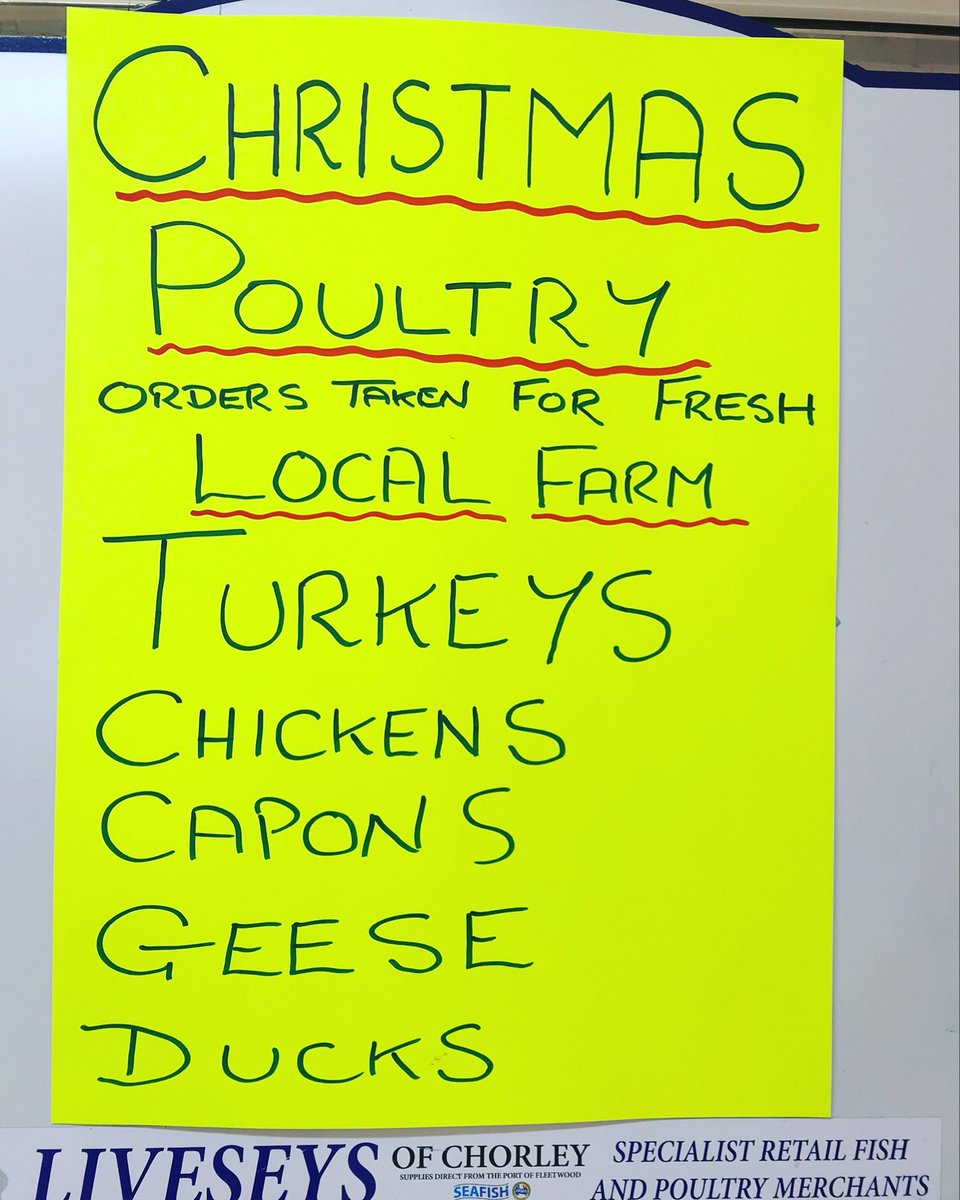 CHRISTMAS
POULTRY
ORDERS TAKEN FOR FRESH
LOCAL FARM
TURKEYS
CHICKENS
CAPONS
GEESE
DUCKS
LIVESEYS OF CHORLEY
SUPPLIES DIRECT FROM THE PORT OF FLEETWOOD
SEAFISH
SPECIALIST RETAIL FISH
AND POULTRY MERCHANTS